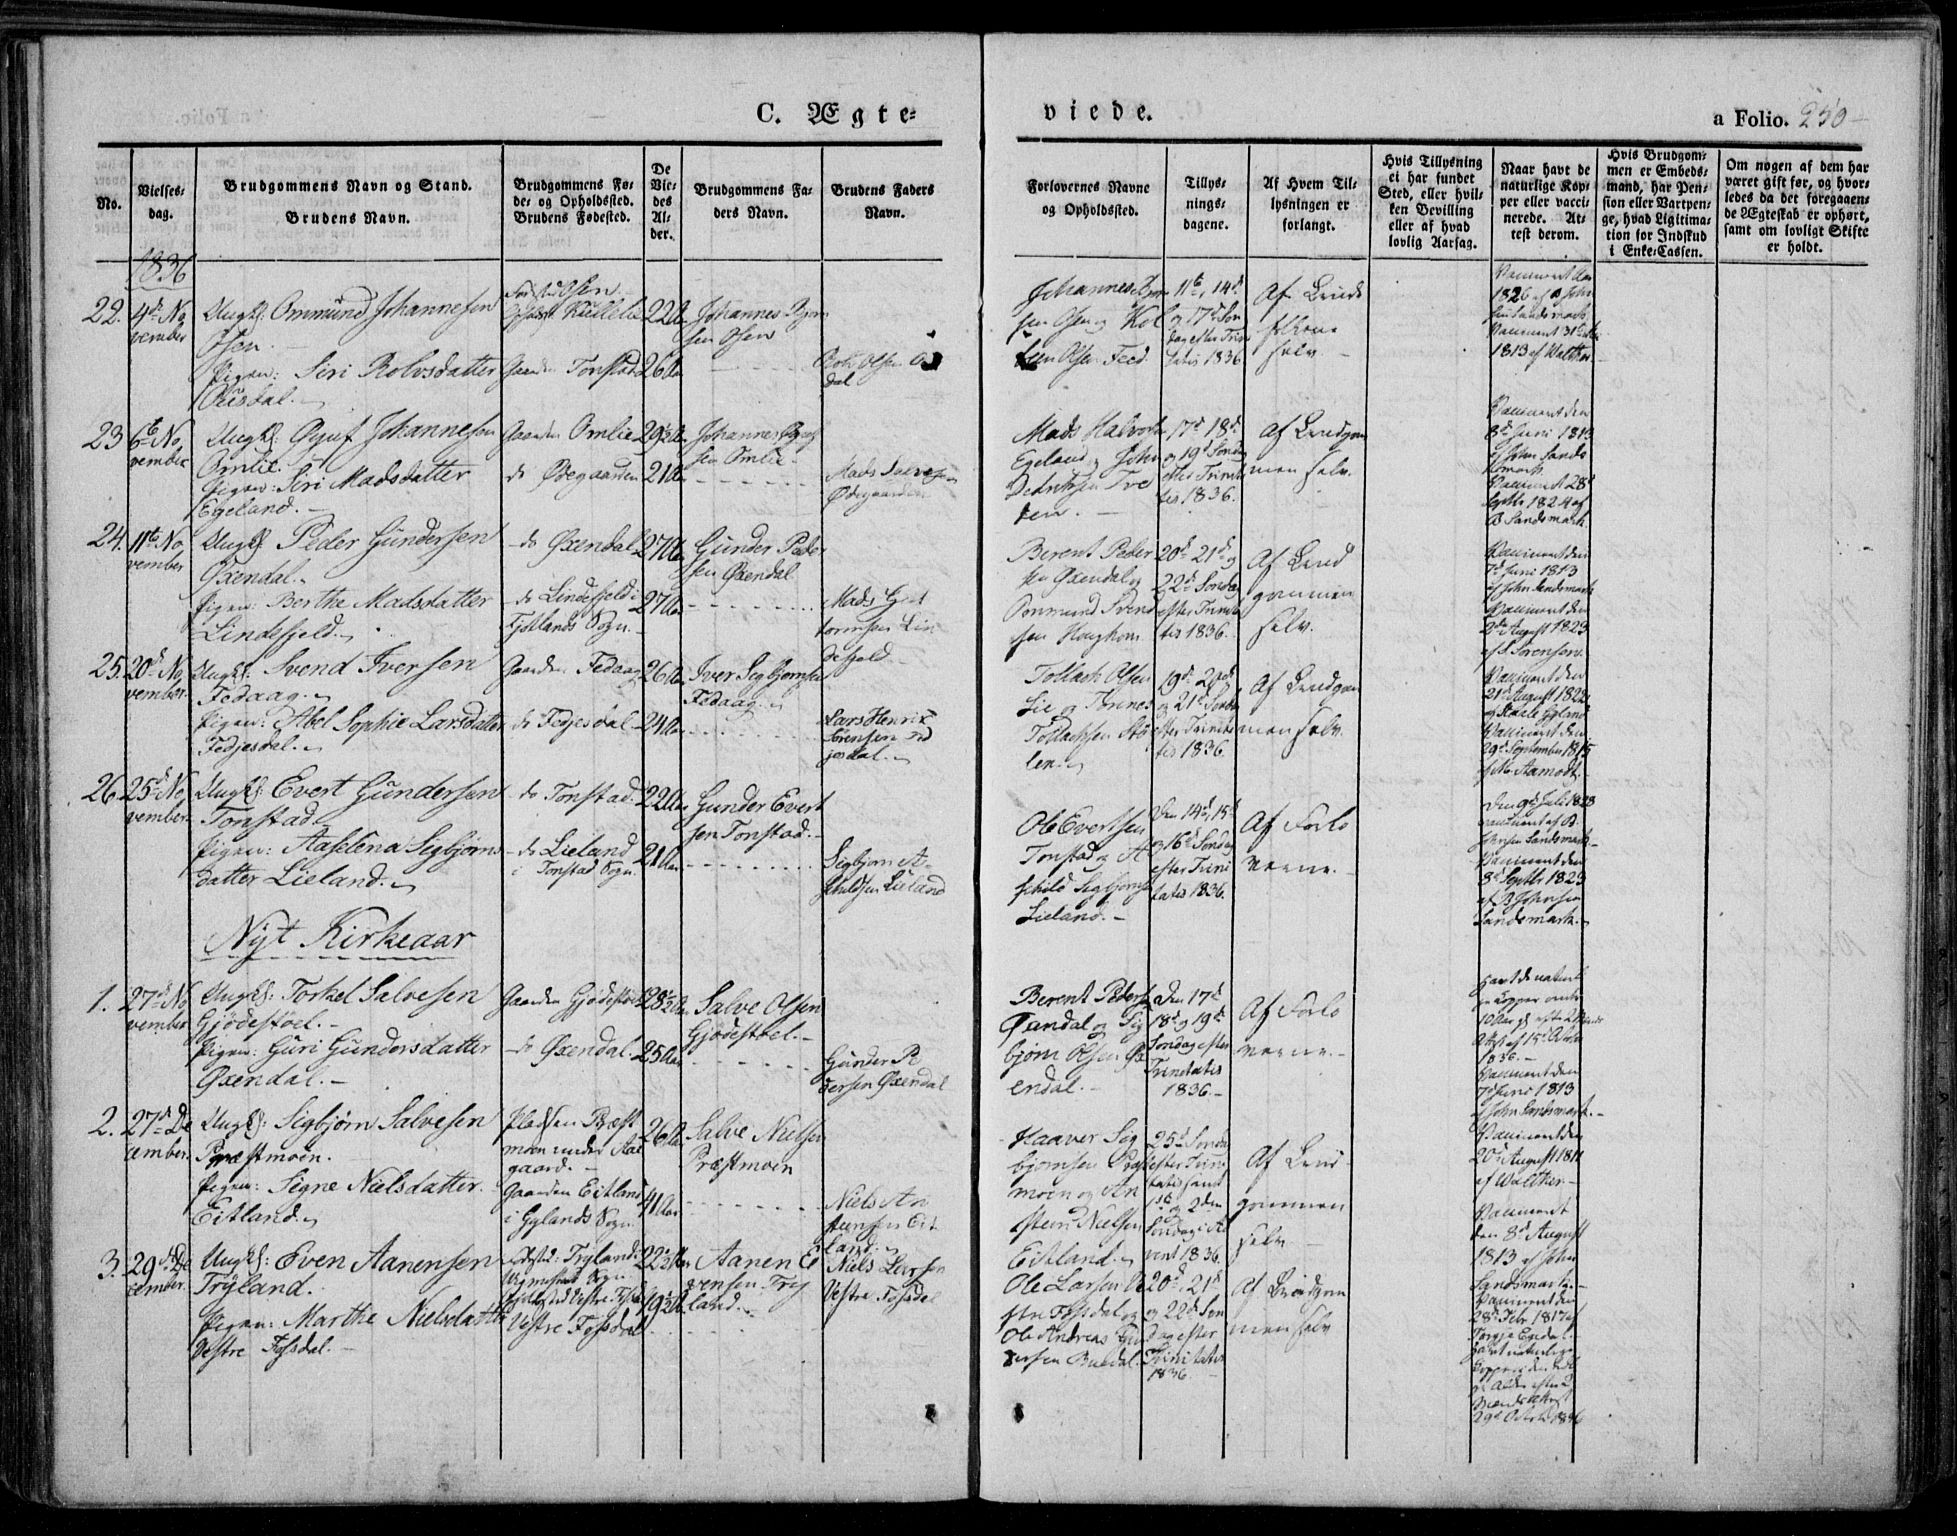 C. Ægte=
viede.
a Folio. 250
No.
Vielses=
dag.
Brudgommens Navn og Stand.
Brudens Navn.
Brudgommens Fø=
de= og Opholdssted.
Brudens Fødested.
De
Vie=
des
Al=
der.
Brudgommens Fa=
ders Navn.
Brudens Faders
Navn.
Forlovernes Navne
og Opholdssted.
Tillys=
nings=
dagene.
Af Hvem Til=
lysningen er
forlangt.
Hvis Tillysning
ei har fundet
Sted, eller hvil=
ken Bevilling
eller af hvad
lovlig Aarsag.
Naar havt de
naturlige Kop=
per eller vacci=
nerede. At=
test derom.
Hvis Brudgom=
men er Embeds=
mand, har Pen=
sion eller Vartpen=
ge, hvad Ligitima=
tion for Indskud
i Enke=Cassen.
Om nogen af dem har
været gift før, og hvor=
ledes da det foregaaen=
de Ægteskab er ophørt,
samt om lovligt Skifte
er holdt.
1836
22. 4de No
vember
Ungk: Ommund Johannesen
Osen.
Pigen: Siri Rolvsdatter
Ousdal.
22 Aar
Gaarden Tonstad
26 Aar
Johannes
sen Osen
Johannes
sen Osen og
Osen Feed
11te, 14de
og 17de Søn
dag efter Trini
tatis 1836
Af
selv
1826
1813 af Walther
23 6te No
vember
Ungk: Johannesen
Omlie
Pigen: Siri Madsdatter
Egeland.
Gaarden Omlie
do Ødegaarden
29½ Aar
21 Aar
Johannes
sen Omlie
Mads Salvesen
Ødegaarden
Mads Halvorsen
Egeland og John
17de 18de
og 19de Søndag
efter Trinita
tis 1836.
Af Brudgom
men selv.
8de Juni 1813
af John Sands
mark.
Vaccineret 28de
Septbr 1824 af
Sandsmark.
24. 11te No
vember
Ungk: Peder Gundersen
Øxendal.
Pigen: Berthe Madsdatter
Lindefjeld.
do Øxendal
do Lindefjeld i
Fjotlands Sogn.
27 Aar
27 Aar
Gunder Peder
sen Øxendal
Mads
tormsen Lin
defjeld
Berent Peder
sen Øxendal og
Ommund Svend
sen Houghom
20de 21de og
22de Søndag
efter Trinita
tis 1836.
Af Brud
gommen
selv.
Vaccineret den
7de Juni 1813
af John Sandsmark
Vaccineret den
2den August 1823
af Sørensen.
25. 20de No
vember.
Ungk: Svend Iversen
Fedaag.
Pigen: Abel Sophie Larsdatter
Fedjesdal.
Gaarden Fedaag
do Fedjesdal
26 Aar
24 Aar
Iver Sigbjørnsen
Fedaag.
Lars Henrik
Sørensen Fed
jesdal.
Tollach Olsen
Lie og Tønnes
Tollachsen Stø
len.
19de 20de
og 21de Søndag
efter Trinita
tis 1836
Af Brudgom
men selv.
Vaccineret den
21de August 1822
Vaccineret den
29de September 1815
af Aamodt.
26. 25de No
vember.
Ungk: Evert Gundersen
Tonstad
Pigen: Aaselena Sigbjørns
datter Lieland.
do Tonstad.
do Lieland
i Tonstad Sogn
22 Aar
21 Aar
Gunder Evert
sen Tonstad.
Sigbjørn A
schildsen Lieland
Ole Evertsen
Tonstad og A
schild Sigbjørnsen
Lieland.
Den 14de, 15de
og 16de Søndag
efter Trini
tatis 1836.
Af Forlo
verne.
Johnsen Sandsmark
Vaccineret den
8de Septbr 1823
af B Johnsen
Sandsmark.
Nyt Kirkeaar
1. 27de No
vember
Ungk: Torkel Salvesen
Gjødestøel.
Pigen: Guri Gundersdatter
Øxendal.
Gaarden Gjødestøel
do Øxendal
28½ Aar
25 Aar
Salve Olsen
Gjødestøel.
Gunder Pe
dersen Øxendal
Berent Pedersen
Øxendal og Sig
bjørn Olsen Øx
endal.
Den 17de
18de og 19de
Søndag efter
Trinitatis
1836.
Af Forlo
verne.
Havt de naturli
ge Kopper
1836.
Vaccineret den
7de Juni 1813
af John Sandsmark.
2. 27de De
cember.
Ungk: Sigbjørn Salvesen
Præstmoen.
Pigen: Signe Nielsdatter.
Eitland.
Pladsen Præst
moen under Aai
gaard.
Gaarden Eitland
i Gylands Sogn
26 Aar
41 Aar
Salve Nielsen
Præstmoen
Niels An
stensen Eit
land.
Haaver Sig
bjørnsen Præst
moen og An
sten Nielsen
Eitland.
25de Søndag
efter Trini
tatis samt
1ste og 2den
Søndag i Ad
vent 1836
Af Brud
gommen
selv
Vaccineret den
20de August 1811
af Walther
Vaccineret
den 8de August
1813 af John
Sandsmark.
3. 29de De
cember.
Ungk: Even Aanensen
Tryland.
Pigen: Marthe Nielsdatter
Vestre Fosdal.
Fødested: Tryland i
Sogn
Vestre Fosdal
22½ Aar
19½ Aar
Aanen E
vensen Try
land.
Niels Larsen
Vestre Fosdal
Ole Larsen Ve
stre Fosdal og
Ole Andreas Gun
dersen Buedal.
20de, 21de
og 22de Søn
dag efter
Trinitatis
1836.
Af Brudgom
men selv
Vaccineret den
28de Febr 1817 af
Havt naturlige
29de Octbr 1836